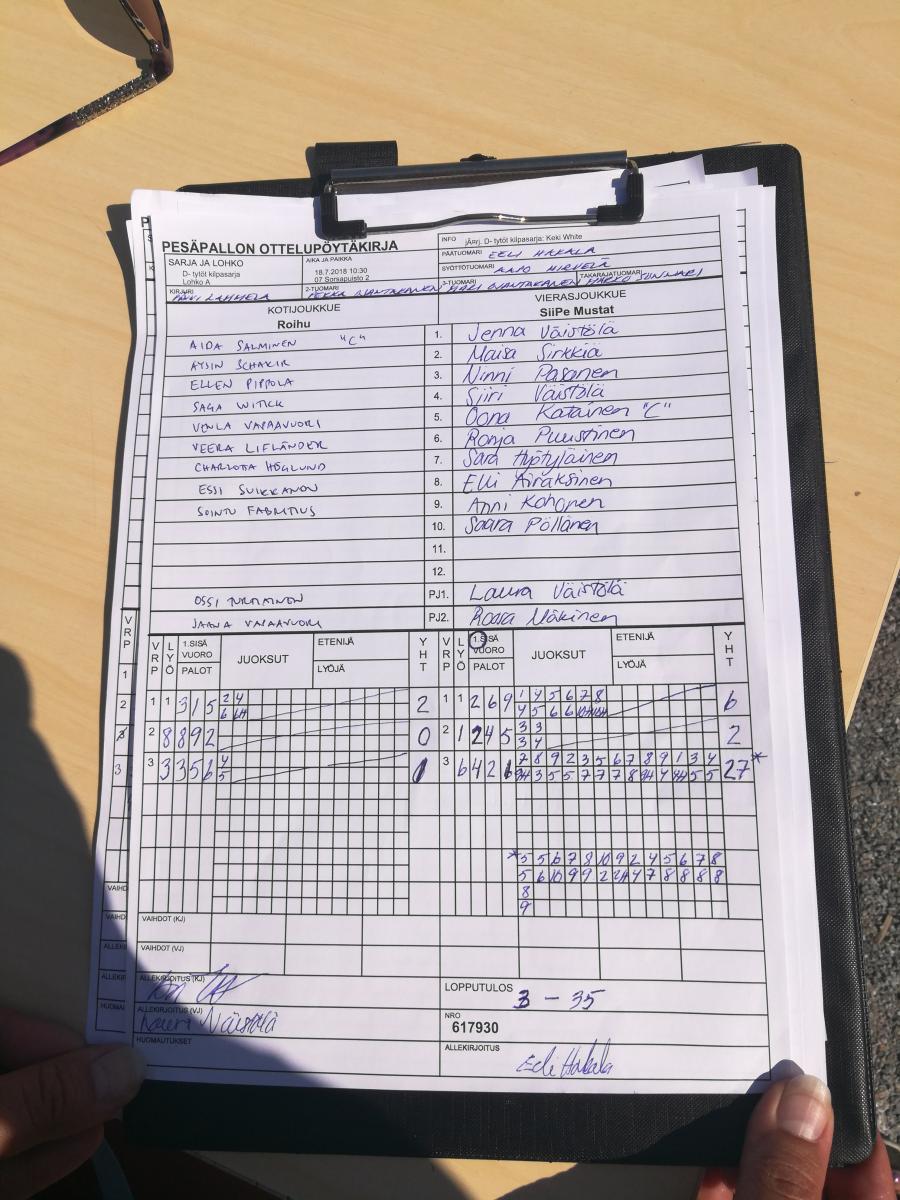 PESÄPALLON OTTELUPÖYTÄKIRJA
INFO jÄrj. D- tytöt kilpasarja: Keki White
PÄÄTUOMARI EELI HAKALA
SYÖTTÖTUOMARI AAPO HIRVELÄ
SARJA JA LOHKO
D- tytöt kilpasarja
Lohko A
AIKA JA PAIKKA
18.7.2018 10:30
07 Sorsapuisto 2
KIRJURI
2-TUOMARI PEKKA
3-TUOMARI
TAKARAJATUOMARI
KOTIJOUKKUE
Roihu
VIERASJOUKKUE
SiiPe Mustat
AIDA SALMINEN "C" 1. Jenna Väistölä
AYSIN SCHAKIR 2. Maisa Sirkkiä
ELLEN PIPPOLA 3. Ninni Pasanen
SAGA WITICK 4. Siiri Väistölä
VENLA VAPAAVUORI 5. Oona Katainen "C"
VEERA LIFLÄNDER 6. Ronja Puustinen
CHARLOTTA HÖGLUND 7. Sara Hyötyläinen
ESSI SUIKKANEN 8. Elli Airaksinen
SOINTU FABRITIUS 9. Anni Kohonen
10. Saara Pöllänen
11.
12.
OSSI TURTIAINEN PJ1. Laura Väistölä
JAANA VAPAAVUORI PJ2. Roosa Mäkinen
VRP LYÖ 1.SISÄ VUORO PALOT JUOKSUT ETENIJÄ LYÖJÄ YHT VRP LYÖ 1.SISÄ VUORO PALOT JUOKSUT ETENIJÄ LYÖJÄ YHT
1 1 3 1 5 2 4 2 1 1 2 6 9 1 4 5 6 7 8 6
2 8 8 9 2 0 2 1 2 4 5 3 3 2
3 4
3 3 3 5 6 4 1 3 6 4 2 7 8 9 2 3 5 6 7 8 9 1 3 4 27*
5
*5 5 6 7 8 10 9 2 4 5 6 7 8
5 6 10 9 9 2 2H 4 7 8 8 8 8
8
9
VAIHDOT (KJ)
VAIHDOT (VJ)
ALLEKIRJOITUS (KJ)
LOPPUTULOS 3 - 35
ALLEKIRJOITUS (VJ) Laura Väistölä
NRO
617930
HUOMAUTUKSET
ALLEKIRJOITUS
Eeli Hakala